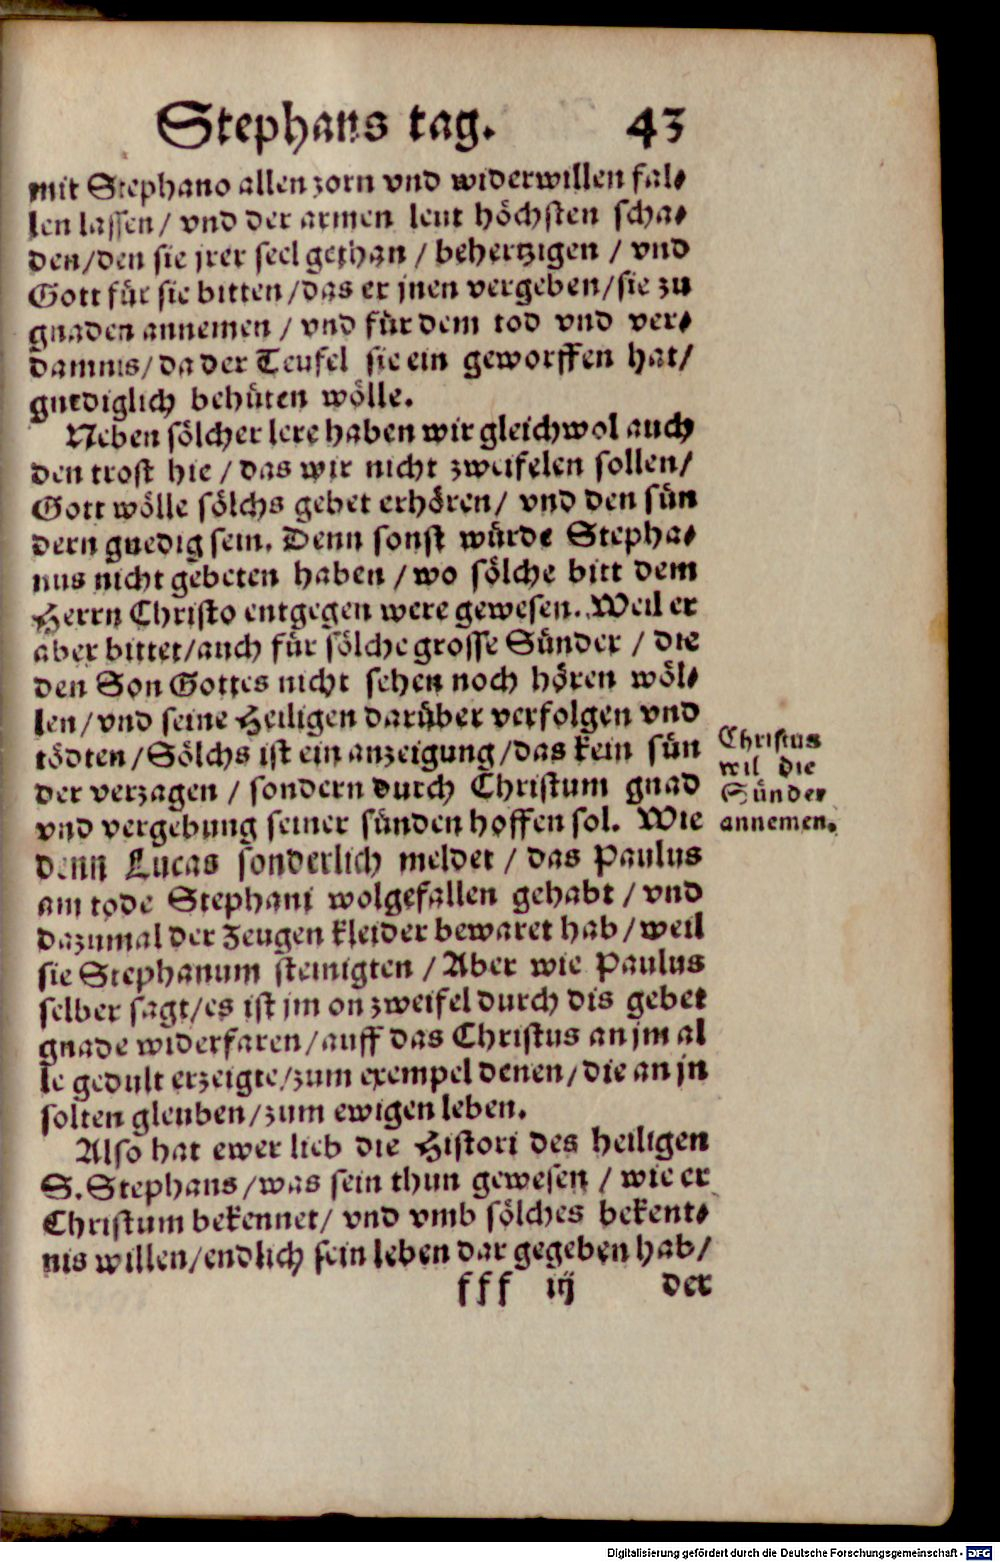 Stephans tag. 43
mit Stephano allen zorn vnd widerwillen fal-
len lassen / vnd der armen leut höchsten scha-
den/den sie jrer seel gethan / behertzigen / vnd
Gott für sie bitten/das er jnen vergeben/sie zu
gnaden annemen / vnd für dem tod vnd ver-
damnis/da der Teufel sie ein geworffen hat/
gnediglich behüten wölle.
Neben sölcher lere haben wir gleichwol auch
den trost hie / das wir nicht zweifelen sollen/
Gott wölle sölchs gebet erhören/ vnd den sün
dern gnedig sein. Denn sonst würde Stepha-
nus nicht gebeten haben / wo sölche bitt dem
Herrn Christo entgegen were gewesen. Weil er
aber bittet/auch für sölche grosse Sünder / die
den Son Gottes nicht sehen noch hören wöl-
len/vnd seine Heiligen darüber verfolgen vnd
tödten/Sölchs ist ein anzeigung/das kein sün
der verzagen / sondern durch Christum gnad
vnd vergebung seiner sünden hoffen sol. Wie
denn Lucas sonderlich meldet / das Paulus
am tode Stephani wolgefallen gehabt / vnd
dazumal der Zeugen kleider bewaret hab/weil
sie Stephanum steinigten / Aber wie Paulus
selber sagt/es ist jm on zweifel durch dis gebet
gnade widerfaren/auff das Christus an jm al
le gedult erzeigte/zum exempel denen/die an jn
solten gleuben/zum ewigen leben.
Also hat ewer lieb die Histori des heiligen
S. Stephans/was sein thun gewesen / wie er
Christum bekennet/ vnd vmb sölches bekent-
nis willen/endlich sein leben dar gegeben hab/
fff iij der
Christus
wil die
Sünder
annemen.
Digitalisierung gefördert durch die Deutsche Forschungsgemeinschaft - DFG